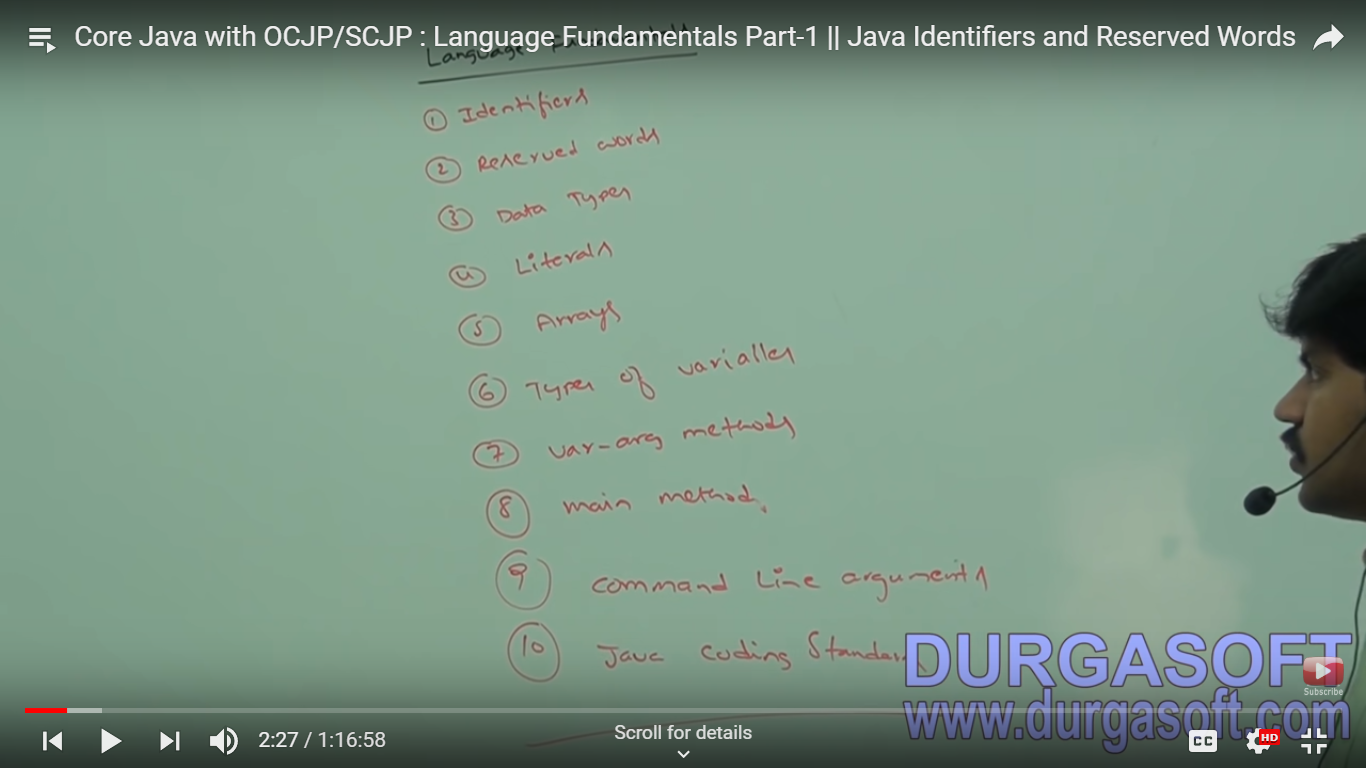 Core Java with OCJP/SCJP : Language Fundamentals Part-1 || Java Identifiers and Reserved Words
Language Fundamentals
① Identifiers
② Reserved words
③ Data Types
④ Literals
⑤ Arrays
⑥ Types of variables
⑦ var-arg methods
⑧ main method
⑨ command Line arguments
⑩ Java coding Standar
DURGASOFT
Subscribe
www.durgasoft.com
2:27 / 1:16:58
Scroll for details
CC
HD